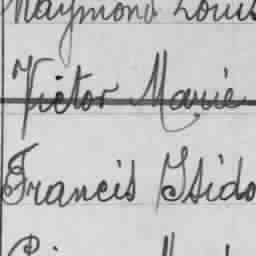 Raymond Louis
Victor Marie
Francis Isido